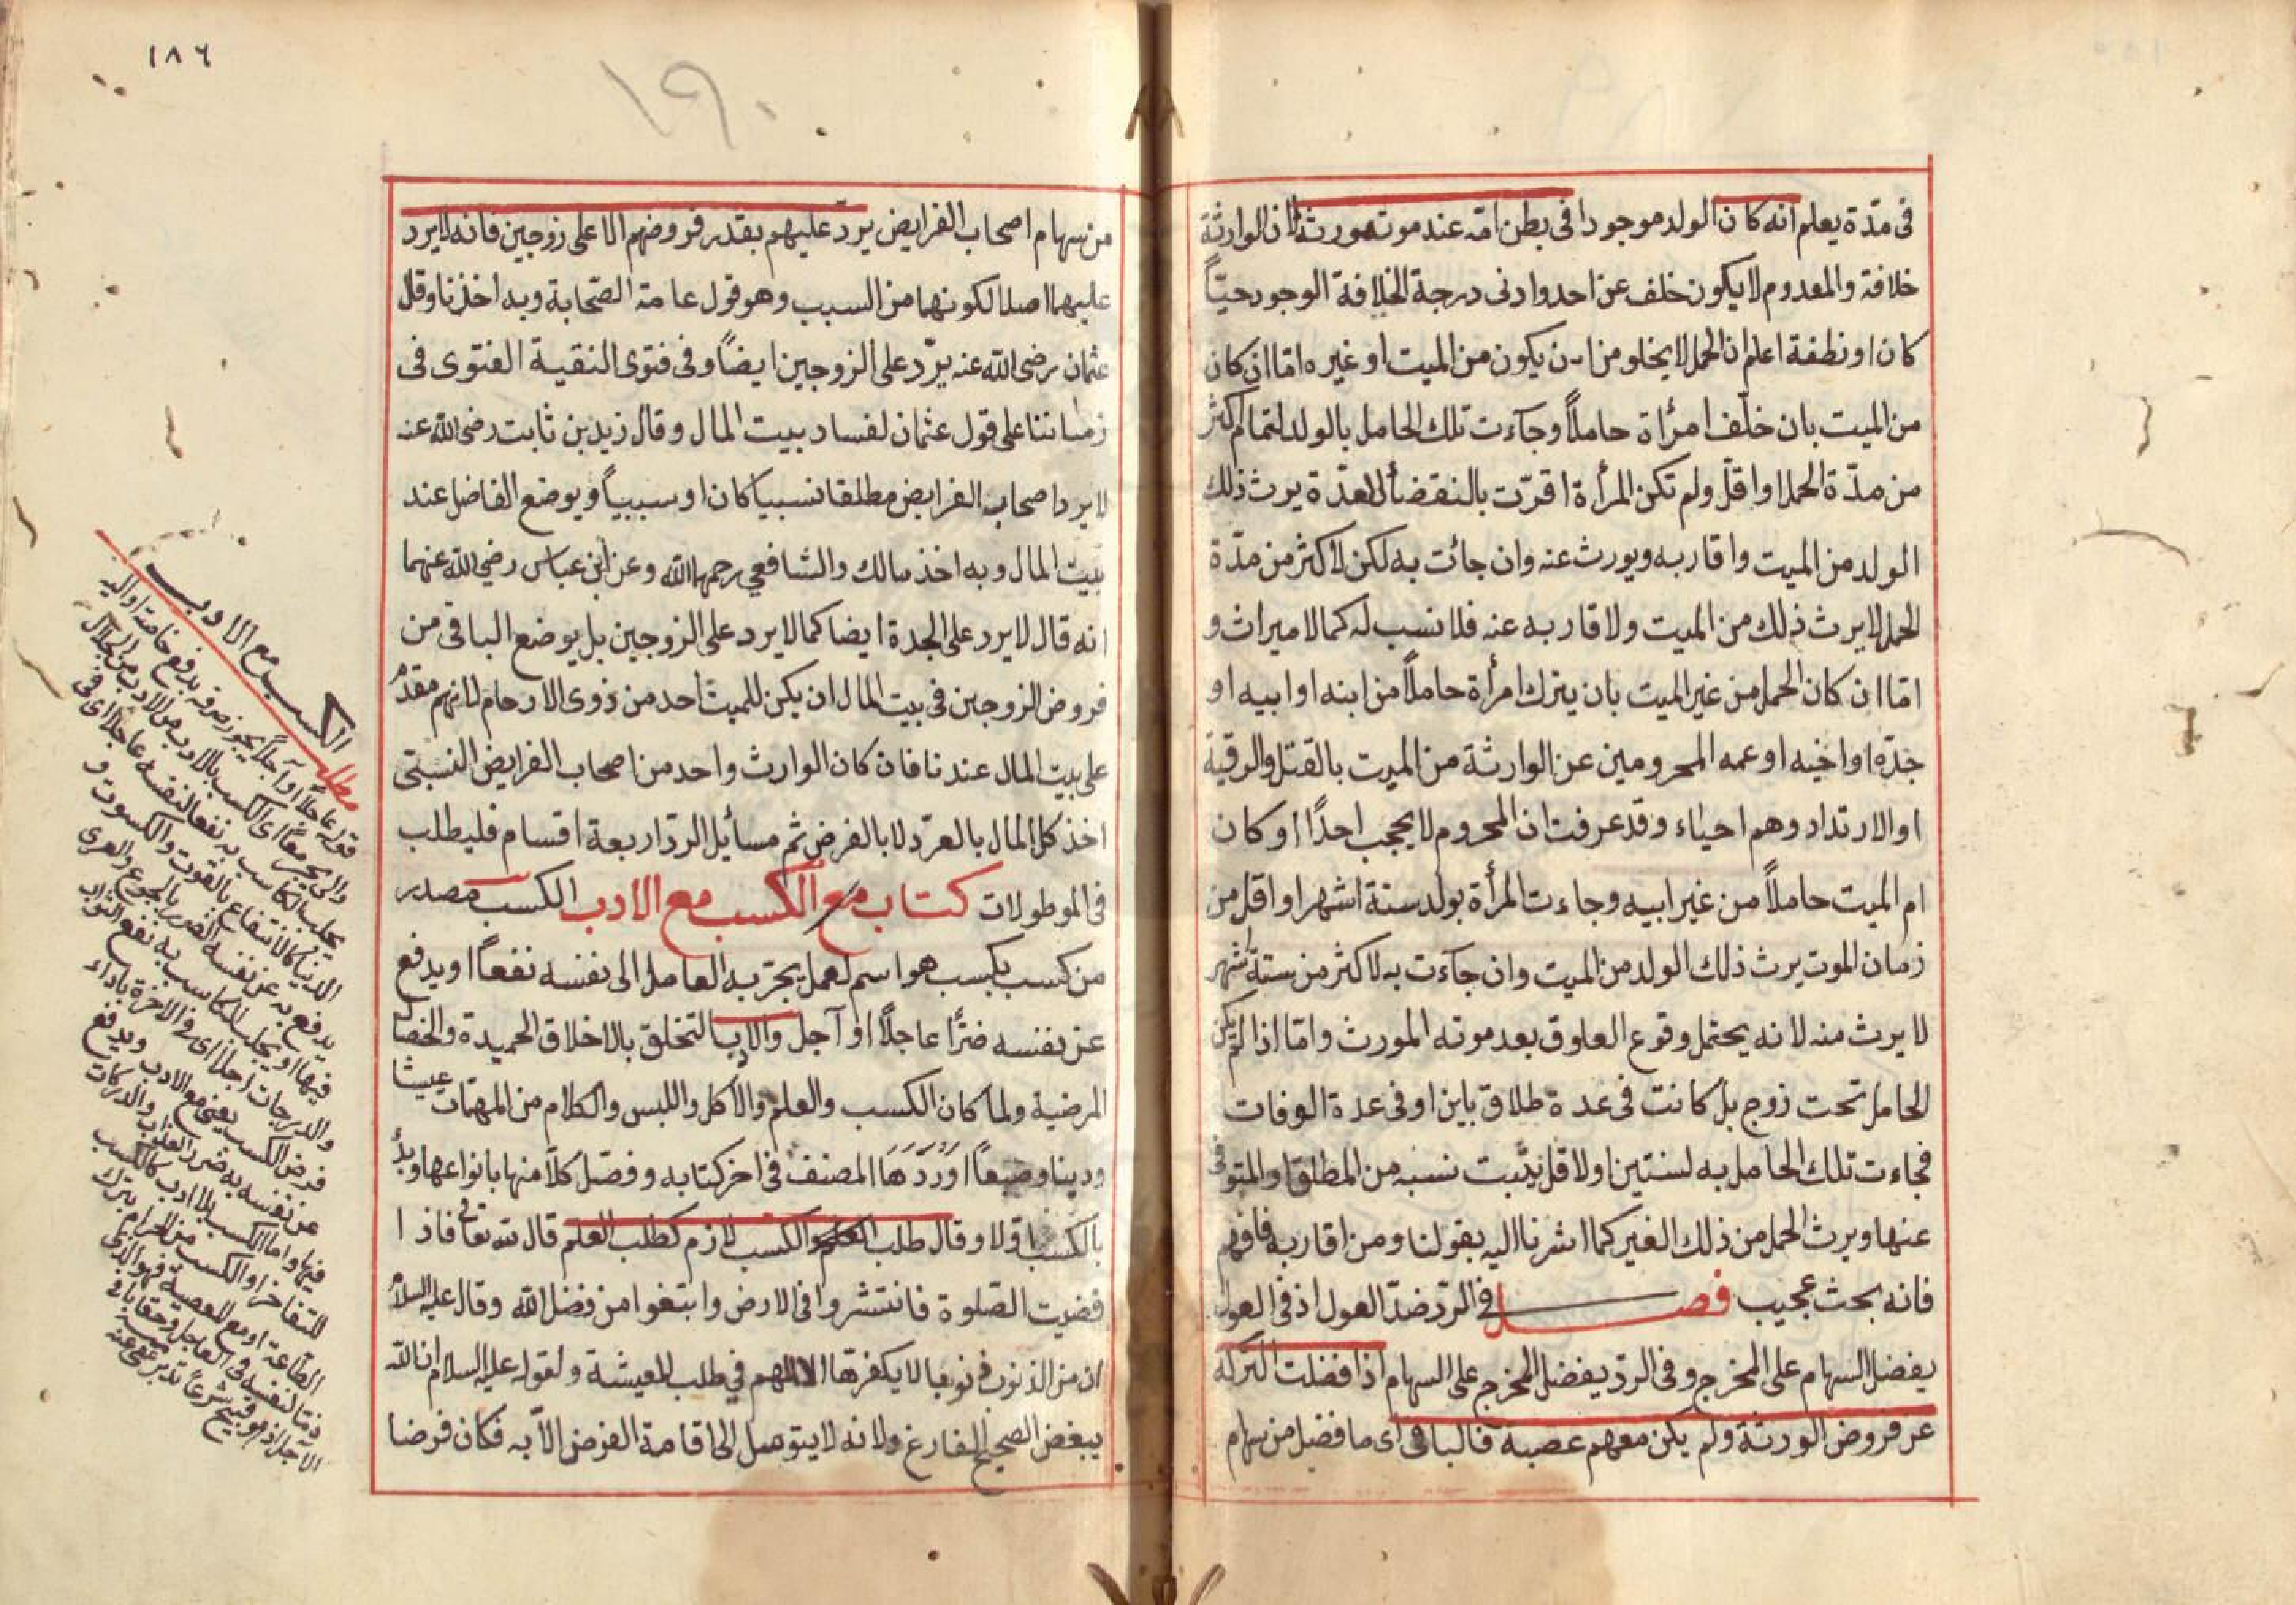 فى مدّة يعلم انه كان الولد موجودا فى بطن امّه عند موته مورثه لان الوارثة
خلافة والمعدوم لا يكون خلف عن احد وادنى درجة الخلافة الوجود حيّاً
كان او نطفة اعلم ان الحمل لا يخلو من ان يكون من الميت او غيره امّا ان كان
من الميت بان خلّف امرأة حاملاً وجآءت تلك الحامل بالولد لتمام اكثر
من مدّة الحمل او اقلّ ولم تكن المرأة اقرّت بالنقضأ العدّة يرث ذلك
الولد من الميت واقاربه ويورث عنه وان جائت به لكن لاكثر من مدّة
الحمل لا يرث ذلك من الميت ولاقاربه عنه فلا نسب له كما لا ميراث و
امّا ان كان الحمل من غير الميت بان يترك امرأة حاملاً من ابنه او ابيه او
جدّه او اخيه او عمه المحرومين عن الوارثة من الميت بالقتل والرقية
او الارتداد وهم احياء وقد عرفت ان المحروم لا يحجب احدًا او كان
ام الميت حاملاً من غير ابيه وجاءت المرأة بولد ستة اشهر او اقل من
زمان الموت يرث ذلك الولد من الميت وان جآءت به لاكثر من ستة اشهر
لا يرث منه لانه يحتمل وقوع العلوق بعد موته المورث وامّا اذا لم يكن
الحامل تحت زوج بل كانت فى عدة طلاق باين او فى عدة الوفات
فجاءت تلك الحامل به لسنتين او لاقل يثبت نسبه من المطلق والمتوفى
عنها ويرث الحمل من ذلك الغير كما اشرنا اليه بقولنا ومن اقاربه فافهم
فانه بحث عجيب فصل فى الردّ ضدّ العول اذ فى العول
يفضل السهام على المخرج وفى الردّ يفضل المخرج على السهام اذا فضلت التركة
عن فروض الورثة ولم يكن معهم عصبة فالباقى اى ما فضل من سهام
١٨٦
١٩٠
من سهام اصحاب الفرايض يردّ عليهم بقدر فروضهم الا على زوجين فانه لا يرد
عليهما اصلا لكونهما من السبب وهو قول عامة الصّحابة وبه اخذنا وقال
عثمان رضى الله عنه يردّ على الزوجين ايضاً وفى فتوى النقية الفتوى فى
زماننا على قول عثمان لفساد بيت المال وقال زيد بن ثابت رضى الله عنه
لا يرد اصحاب الفرايض مطلقا نسبيا كان او سببياً ويوضع الفاضل عند
بيت المال وبه اخذ مالك والشافعي رحمهما الله وعن ابن عباس رضي الله عنهما
انه قال لا يرد على الجدة ايضا كما لا يرد على الزوجين بل يوضع الباقى من
فروض الزوجين فى بيت المال ان يكن للميت احد من ذوى الارحام لانهم مقدّم
على بيت المال عندنا فان كان الوارث واحد من اصحاب الفرايض النسبتى
اخذ كل المال بالعرّد لا بالفرض ثم مسأيل الردّ اربعة اقسام فليطلب
فى الموطولات كتاب مع الكسب مع الادب الكسب مصدر
من كسب يكسب هو اسم لعمل يجرّ به العامل الى نفسه نفعاً او يدفع
عن نفسه ضرًّا عاجلاً او آجل والادب التخلق بالاخلاق الحميدة والخصال
المرضية ولما كان الكسب والعلم والاكل واللبس والكلام من المهمّات عيشا
ودينا وضيعاً اَوْرَدَهَا المصنف فى اخر كتابه وفصّل كلاّ منها بانواعها وبدأ
بالكسب اوّلا وقال طلب العلم والكسب لازم كطلب العلم قال الله تعالى فاذا
قضيت الصّلوة فانتشروا فى الارض وابتغوا من فضل الله وقال عليه السلام
ان من الذنوب ذنوبا لا يكفرها الا الهم في طلب المعيشة ولقوله عليه السلام ان الله
يبغض الصحيح الفارغ ولانه لا يتوصل الى اقامة الفرض الاّ به فكان فرضا
مطلب الكسب مع الادب
قوله عاجلاً او آجلاً يجوز صرفه يدفع خاصة او اليه
والى يجرّ معاً اى الكسب بالادب من الحلال
يجلب الكاسب به نفعا لنفسه عاجلا اى فى
الدنيا كالانتفاع بالقوت والكسوت و
يدفع به عن نفسه الضرر بالجوع والعرى
فيها او يجلب الكاسب به نفع الثواب
والدرجات اجلا اى فى الاخرة باداء
فرض الكسب يعنى مع الادب ويدفع
عن نفسه به ضرر العذاب والدركات
فيها واما الكسب بلا ادب كالكسب
للتفاخر او الكسب من الحرام بترك
الطاعة او مع المعصية فهو الذى